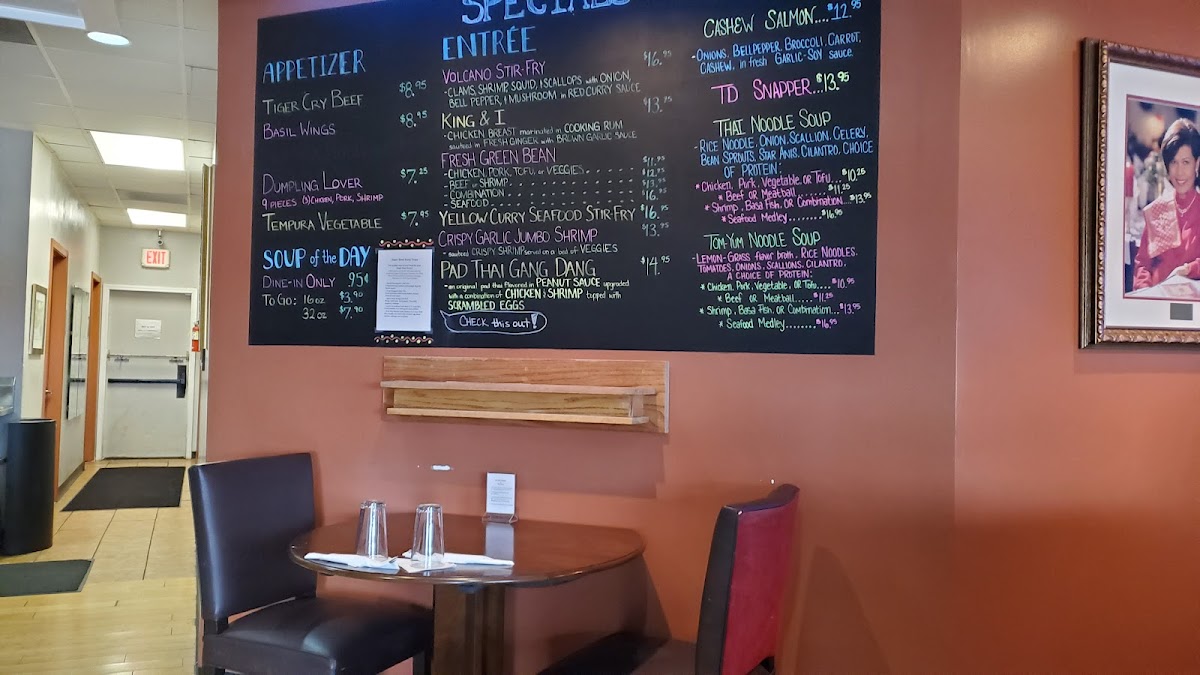 SPECIALS
APPETIZER
TIGER CRY BEEF $8.95
BASIL WINGS $8.95
DUMPLING LOVER $7.25
9 PIECES (3)CHICKEN, PORK, SHRIMP
TEMPURA VEGETABLE $7.95
SOUP of the DAY
DINE-IN ONLY 95¢
TO GO: 16 oz $3.90
32 oz $7.90
ENTRÉE
VOLCANO STIR-FRY $16.95
- CLAMS, SHRIMP, SQUID, & SCALLOPS with ONION,
BELL PEPPER, & MUSHROOM in RED CURRY SAUCE
KING & I $13.95
- CHICKEN BREAST marinated in COOKING RUM
sauteed in FRESH GINGER with BROWN GARLIC SAUCE
FRESH GREEN BEAN
- CHICKEN, PORK, TOFU, or VEGGIES $11.95
- BEEF or SHRIMP $12.95
- COMBINATION $13.95
- SEAFOOD $16.95
YELLOW CURRY SEAFOOD STIR-FRY $16.95
CRISPY GARLIC JUMBO SHRIMP $13.95
- sauteed CRISPY SHRIMP served on a bed of VEGGIES
PAD THAI GANG DANG $14.95
- an original pad thai flavored in PEANUT SAUCE upgraded
with a combination of CHICKEN & SHRIMP topped with
SCRAMBLED EGGS
CHECK this out!
CASHEW SALMON....$12.95
- ONIONS, BELLPEPPER, BROCCOLI, CARROT,
CASHEW, in fresh GARLIC-SOY sauce
TD SNAPPER...$13.95
THAI NOODLE SOUP
- RICE NOODLE, ONION, SCALLION, CELERY,
BEAN SPROUTS, STAR ANIS, CILANTRO, CHOICE
OF PROTEIN:
* Chicken, Pork, Vegetable, OR Tofu...$10.25
* Beef OR Meatball.......$11.25
* Shrimp, Basa Fish, OR Combination...$13.95
* Seafood Medley........$16.95
TOM-YUM NOODLE SOUP
- LEMON-GRASS flavor broth, RICE NOODLES,
TOMATOES, ONIONS, SCALLIONS, CILANTRO,
& CHOICE OF PROTEIN:
* Chicken, Pork, Vegetable, OR Tofu....$10.95
* Beef OR Meatball.....$11.25
* Shrimp, Basa Fish, OR Combination...$13.95
* Seafood Medley........$16.95
EXIT